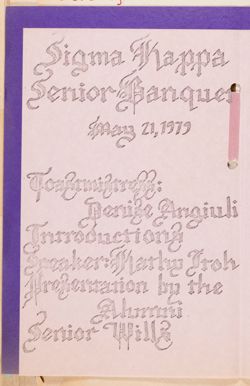 Sigma Kappa
Senior Banquet
May 21, 1979
Toastmistress:
Denise Angiuli
Introductions
Speaker: Kathy
Presentation by the
Alumni
Senior Wills